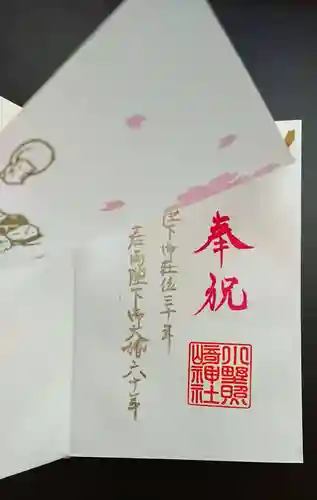 奉祝
陛下御在位三十年
両陛下御大婚六十年
小野照
崎神社